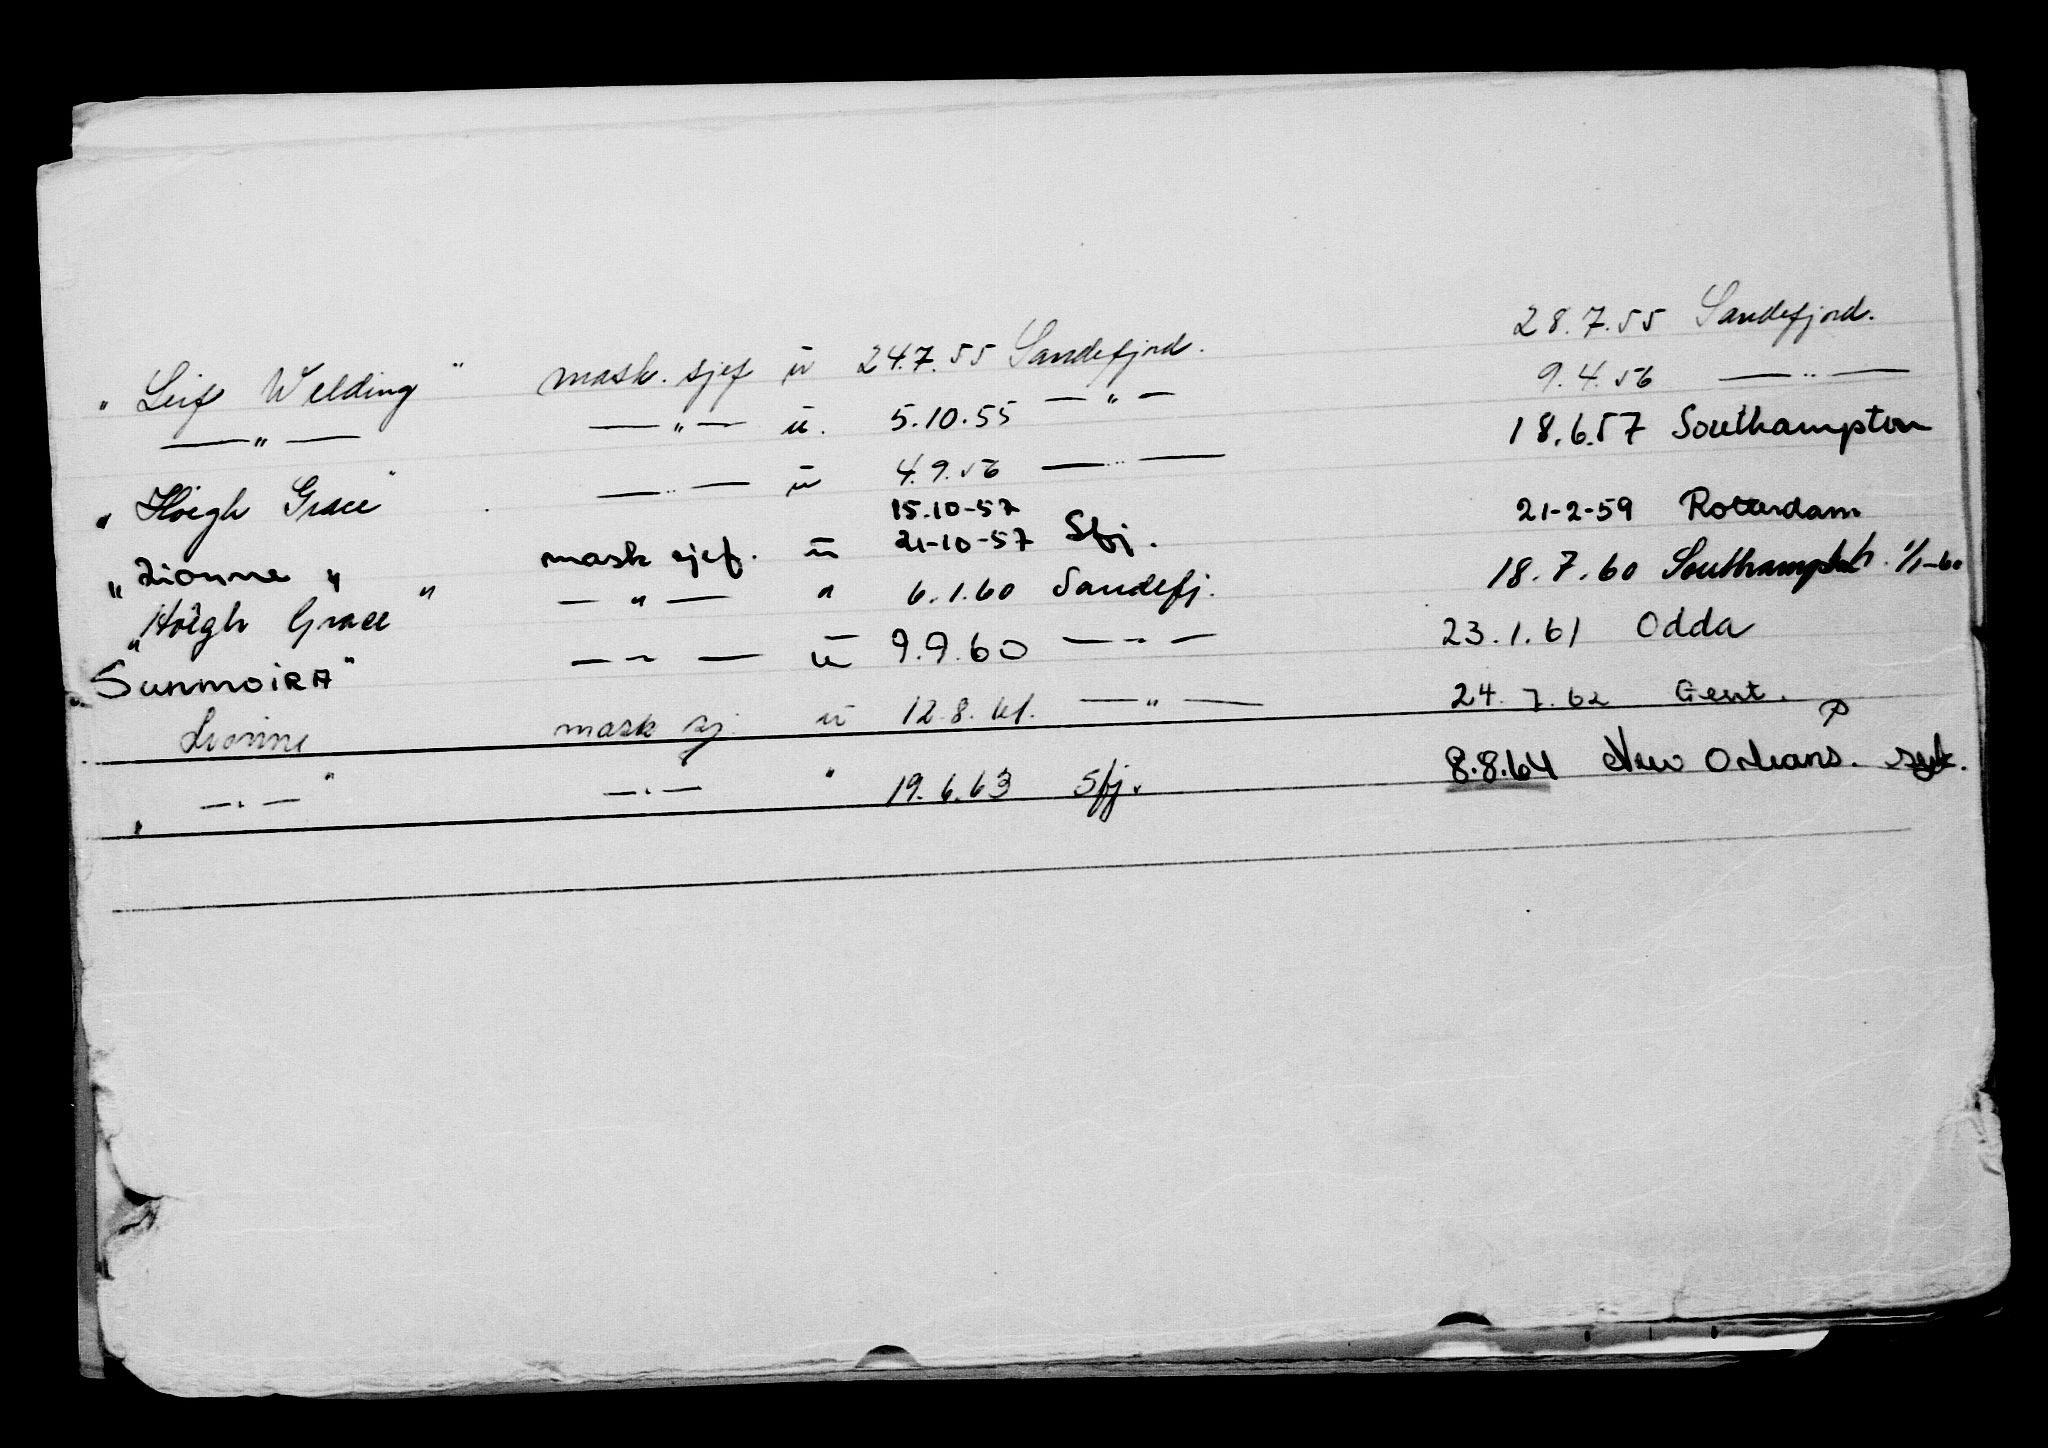 "Leif Welding" mask. sjef u 24.7.55 Sandefjord. 28.7.55 Sandefjord.
—"— —"— u. 5.10.55 —"— 9.4.56 —"—
"Höegh Grace" —"— u 4.9.56 —"— 18.6.57 Southampton
15.10-57
"Lionne" mask sjef. u 21-10-57 Sfj. 21-2-59 Rotterdam
"Höegh Grace" —"— " 6.1.60 Sandefj. 18.7.60 1/1-60
"SunmoiRA" —"— u 9.9.60 —"— 23.1.61 Odda
Lionne mask sj. u 12.8.61. —"— 24.7.62 Gent.
"—"—" —"— " 19.6.63 Sfj. 8.8.64 New Orleans. syk.